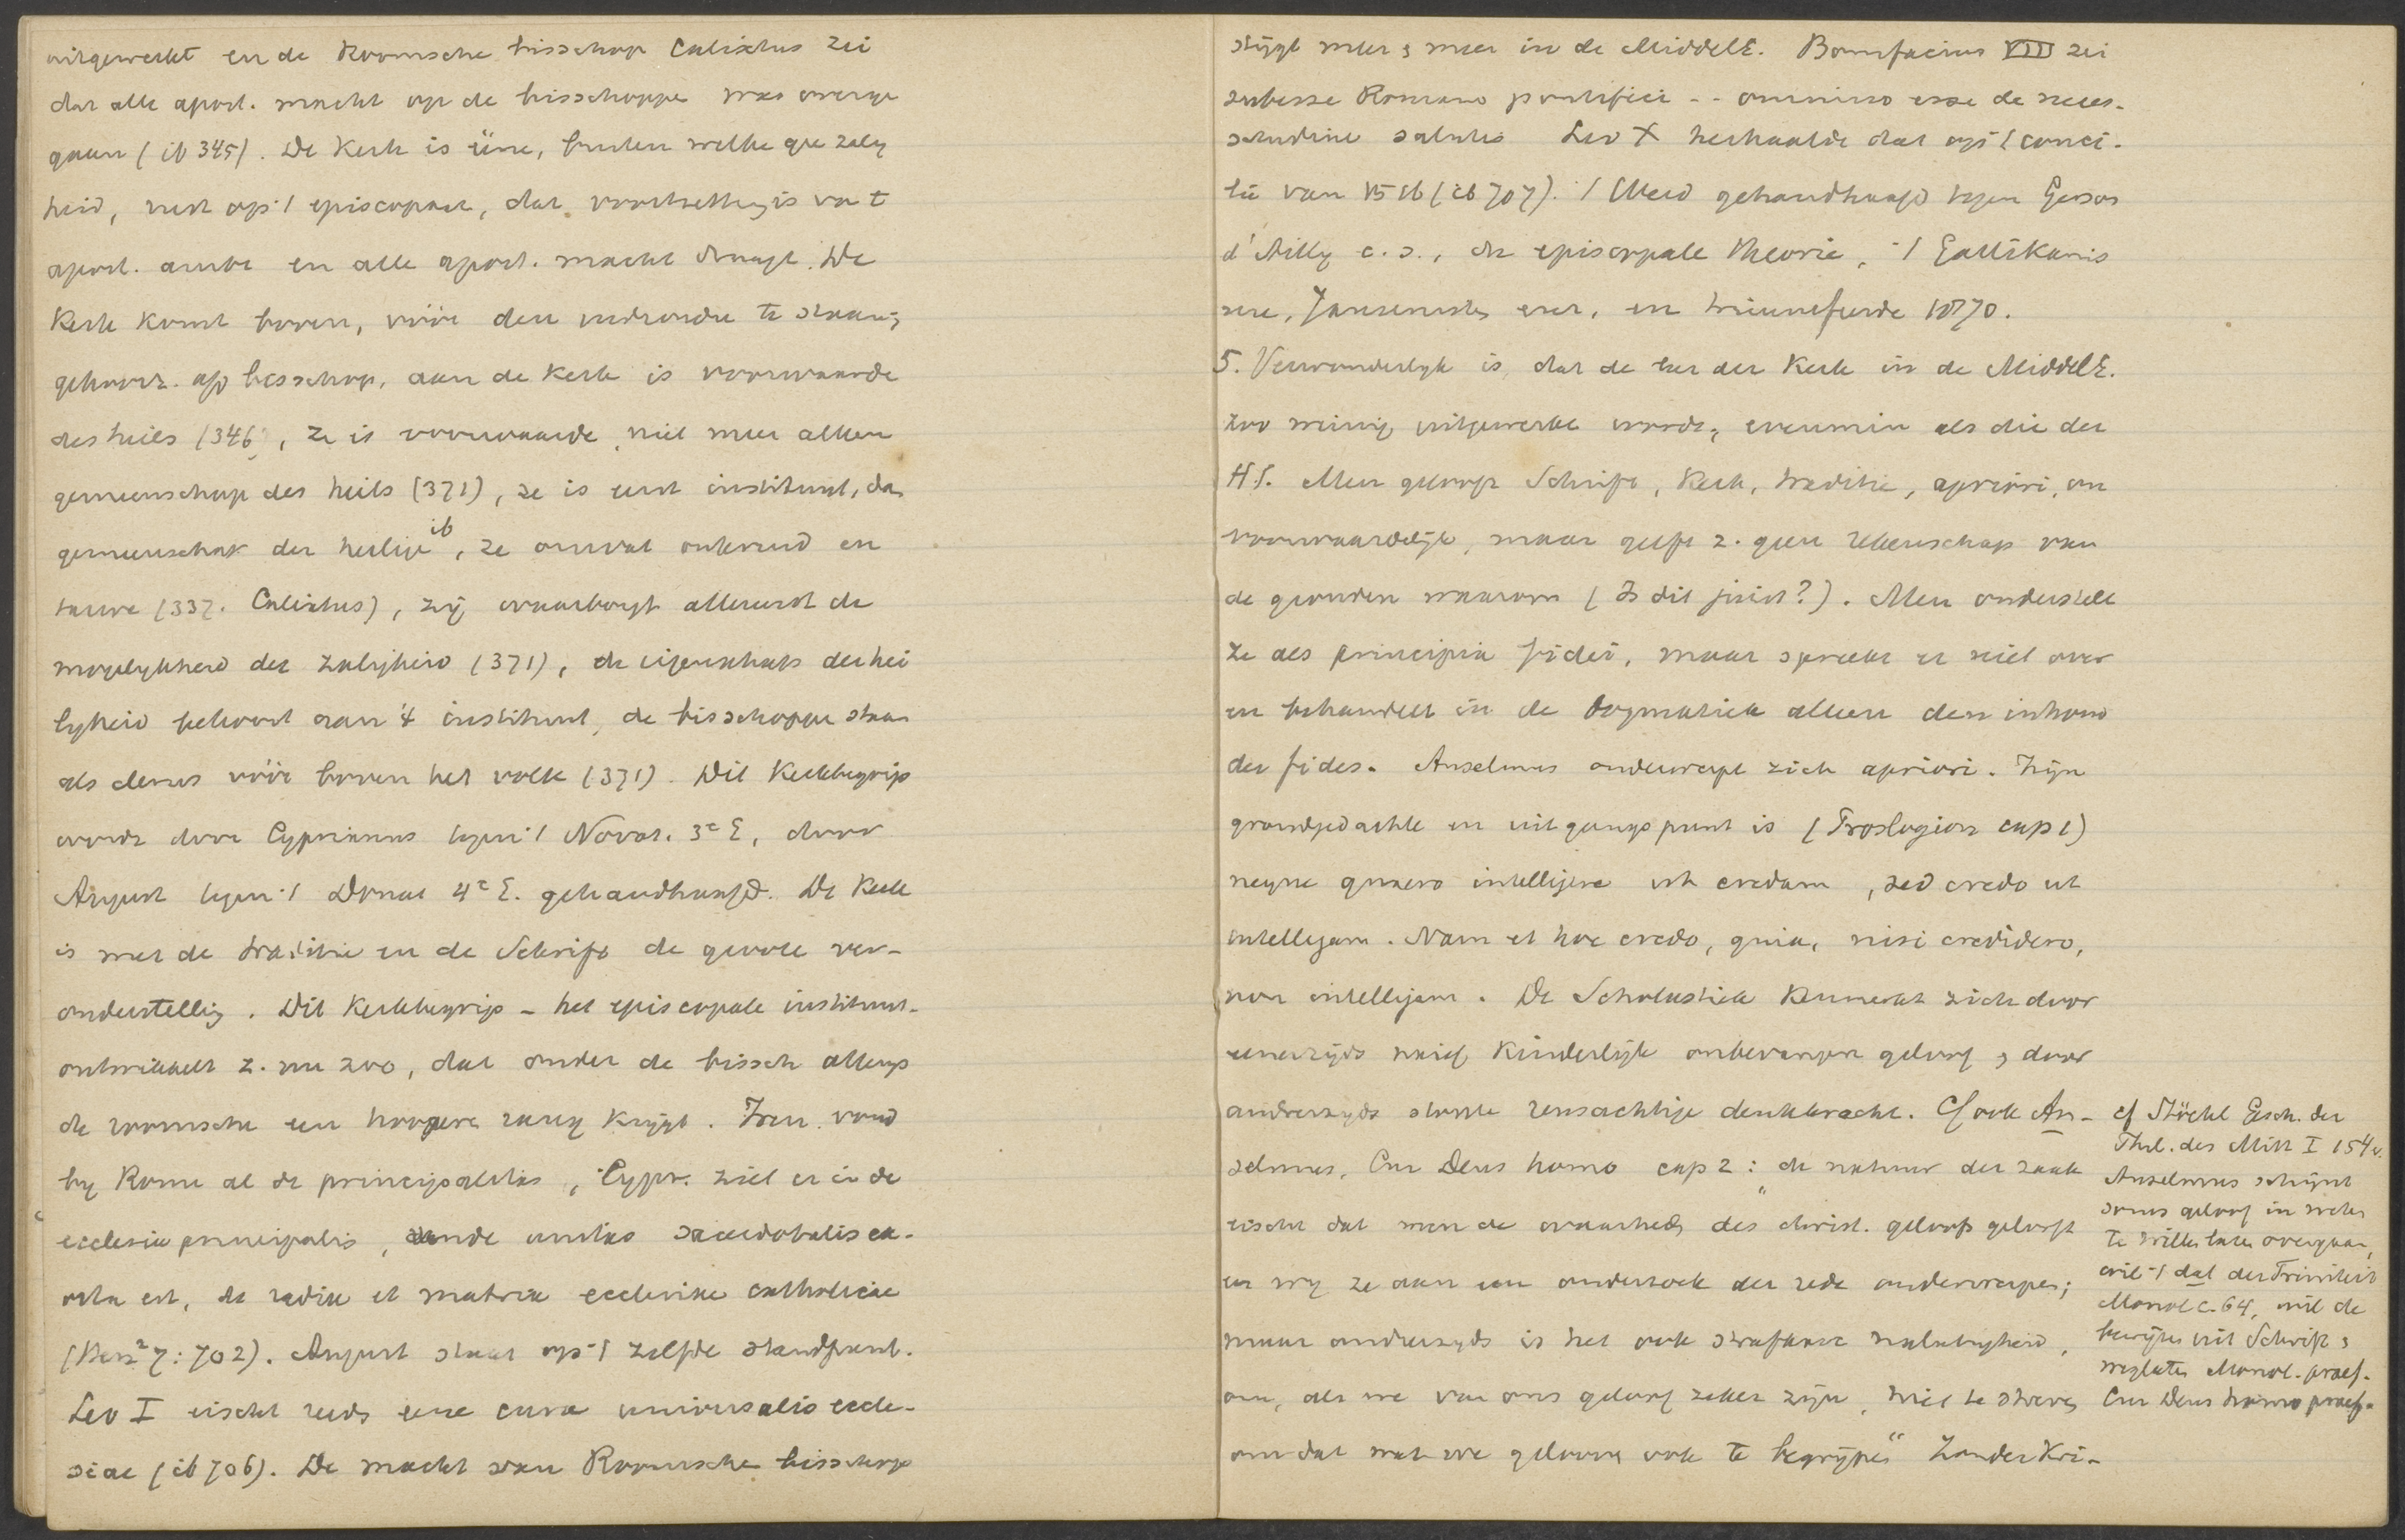 uitgewerkt en de Roomsche bisschop Calixtus zei
dat alle apost. macht op de bisschoppe was overge
gaan (ib 345). De Kerk is ééne, buiten welke gee zalig
heid, rust op 't episcopaat, dat voortzetting is van t
apost. ambt en alle apost. macht draagt. De
Kerk komt boven, vóór den individu te staan;
gehoorz. a/d bisschop, aan de Kerk is voorwaarde
des heils (346), ze is voorwaarde, niet meer alleen
gemeenschap des heils (371), ze is eerst instituut, dan
gemeenschap der heilige ib, ze omvat onkruid en
tarwe (337. Calixtus), zij waarborgt allereerst de
mogelykheid der zaligheid (371), de eigenschap der hei
ligheid behoort aan 't instituut, de bisschoppe staan
als clerus vóór boven het volk (371). Dit Kerkbegrip
wordt door Cyprianus tegen 't Novat. 3e E, door
August tegen 't Donat 4e E. gehandhaafd. De Kerk
is met de traditie en de Schrift de groote ver-
onderstelling. Dit Kerkbegrip - het episcopale instituut-
ontwikkelt z. nu zoo, dat onder de bissch allengs
de roomsche een hoogere rang krygt. Iren. vond
by Rome al de principalitas, Cypr. ziet er in de
ecclesia principalis, unde unitas sacerdotalis ex-
orta est, de radix et matrix ecclesiae catholicae
(Herz² 7: 702). August staat op 't zelfde standpunt.
Leo I eischt reeds eene cura universalis eccle-
siae (ib 706). De macht van Roomsche bisschop
stijgt meer & meer in de MiddelE. Bonifacius VIII zei
subesse Romano pontifici -- omnino esse de neces-
situdine salutis Leo X herhaalde dat op 't conci-
lie van 1516 (ib 707). 't Werd gehandhaafd tegen Gerson
d'Ailly c.s., de episcopale theorie, 't Gallikanis
me, Jansenisten enz., en triumfeerde 1870.
5. Verwonderlyk is, dat de leer der Kerk in de MiddelE.
zoo weinig uitgewerkt wordt, evenmin als die der
H.S. Men gelooft Schrift, Kerk, traditie, apriori, on
voorwaardelijk, maar geeft z. geen rekenschap van
de gronden waarom (Is dit juist?). Men onderstelt
ze als principia fidei, maar spreekt er niet over
en behandelt in de Dogmatiek alleen den inhoud
der fides. Anselmus onderwerpt zich apriori. Zijn
grondgedachte en uitgangspunt is (Proslogion cap 1)
neque quaero intelligere ut credam, sed credo ut
intelligam. Nam et hoc credo, quia, nisi credidero,
non intelligam. De Scholastiek kenmerkt zich door
eenerzijds naief kinderlijk onbevangen geloof & door
anderzyds sterke reusachtige denkkracht. Cf ook An-
selmus, Cur Deus homo cap 2: "de natuur der zaak
eischt dat men de waarheden des christ. geloofs gelooft
eer wy ze aan een onderzoek der rede onderwerpen;
maar anderzyds is het ook strafbare nalatigheid,
om, als we van ons geloof zeker zijn, niet te streven
om dat wat we gelooven ook te begrijpen" Zonder Kri-
cf Stöckl Gesch. der
Phil. des Mitt I 154 v.
Anselmus schijnt
soms geloof in weten
te willen laten overgaan,
wil 't dat der Triniteit
Monol c. 64, wil de
bewijzen uit Schrift &
weglaten Monol. praef.
Cur Deus homo praef.